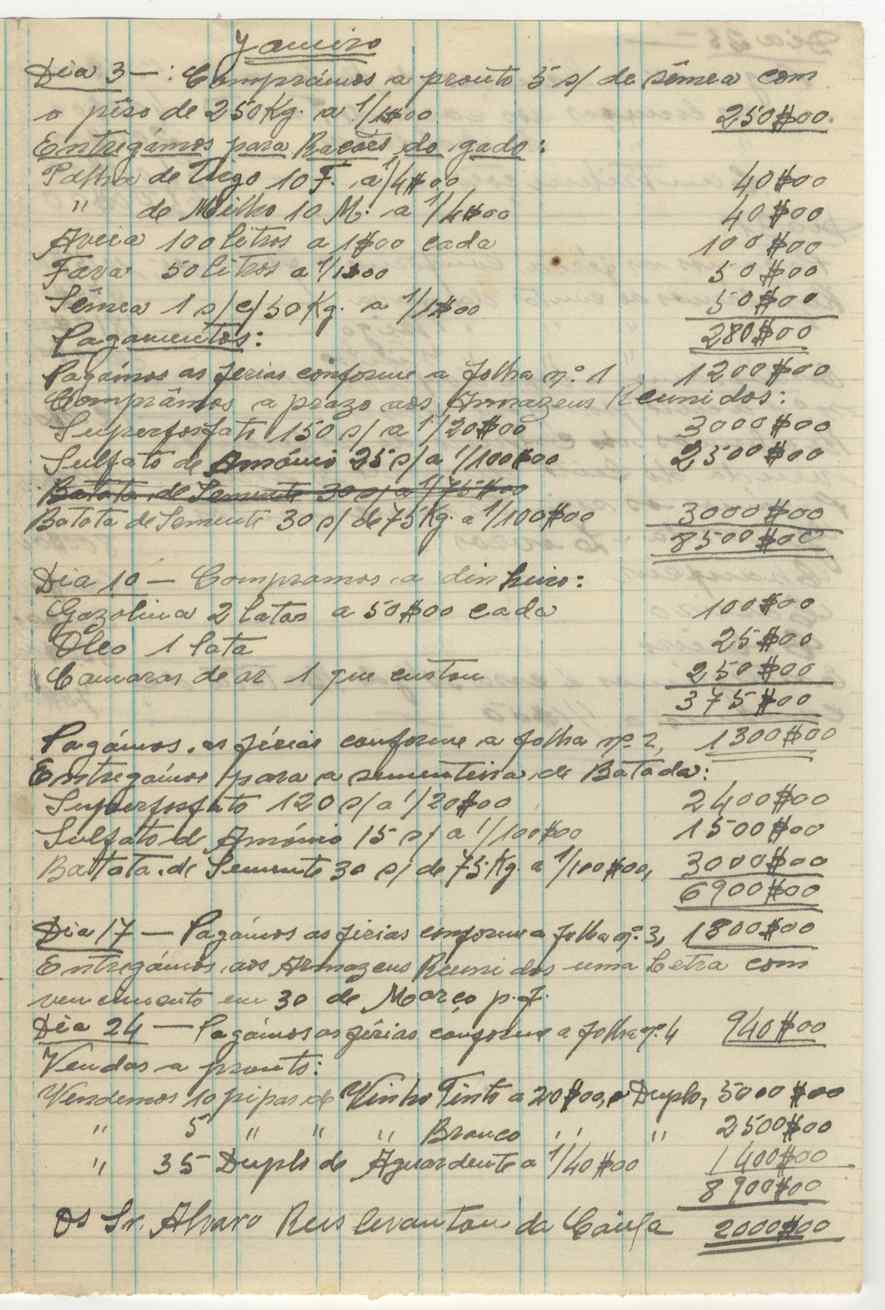 Janeiro
Dia 3 —: Comprámos a pronto 5 s/ de sêmea com
o pêso de 250 Kg. a 1/1$00 250$00.
Entregámos para Racões do gado:
Palha de Trigo 10 F. a 1/4$00 40$00
" de Milho 10 M. a 1/4$00 40$00
Aveia 100 litros a 1$00 cada 100$00
Fava 50 litros a 1/1$00 50$00
Sêmea 1 s/ c/ 50 Kg. a 1/1$00 50$00
Pagamentos: 280$00
Pagámos as férias conforme a folha nº. 1 1200$00
Comprámos a prazo aos Armazens Reunidos:
Superfosfato 150 s/ a 1/20$00 3000$00
Sulfato de Amónio 25 s/ a 1/100$00 2500$00
Batata de Semente 30 s/ a 1/75$00
Batata de Semente 30 s/ de 75 Kg. a 1/100$00 3000$00
8500$00
Dia 10 — Compramos a dinheiro:
Gazolina 2 latas a 50$00 cada 100$00
Óleo 1 lata 25$00
Camaras de ar 1 que custou 250$00
375$00
Pagámos as férias conforme a folha nº. 2, 1300$00
Entregámos para a sementeira de Batada:
Superfosfato 120 s/ a 1/20$00 2400$00
Sulfato de Amónio 15 s/ a 1/100$00 1500$00
Battata de Semente 30 s/ de 75 Kg. a 1/100$00, 3000$00
6900$00
Dia 17 — Pagámos as férias conforme a folha nº. 3, 1800$00
Entregámos aos Armazens Reunidos uma Letra com
vencimento em 30 de Março p.f.
Dia 24 — Pagámos as férias conforme a folha nº. 4 940$00
Vendas a pronto:
Vendemos 10 pipas de Vinho Tinto a 20$00, o Duplo, 5000$00
" 5 " " " Branco " " 2500$00
" 35 Duplo de Aguardente a 1/40$00 1400$00
8900$00
Os Sr. Alvaro Reis levantou da Caixa 2000$00